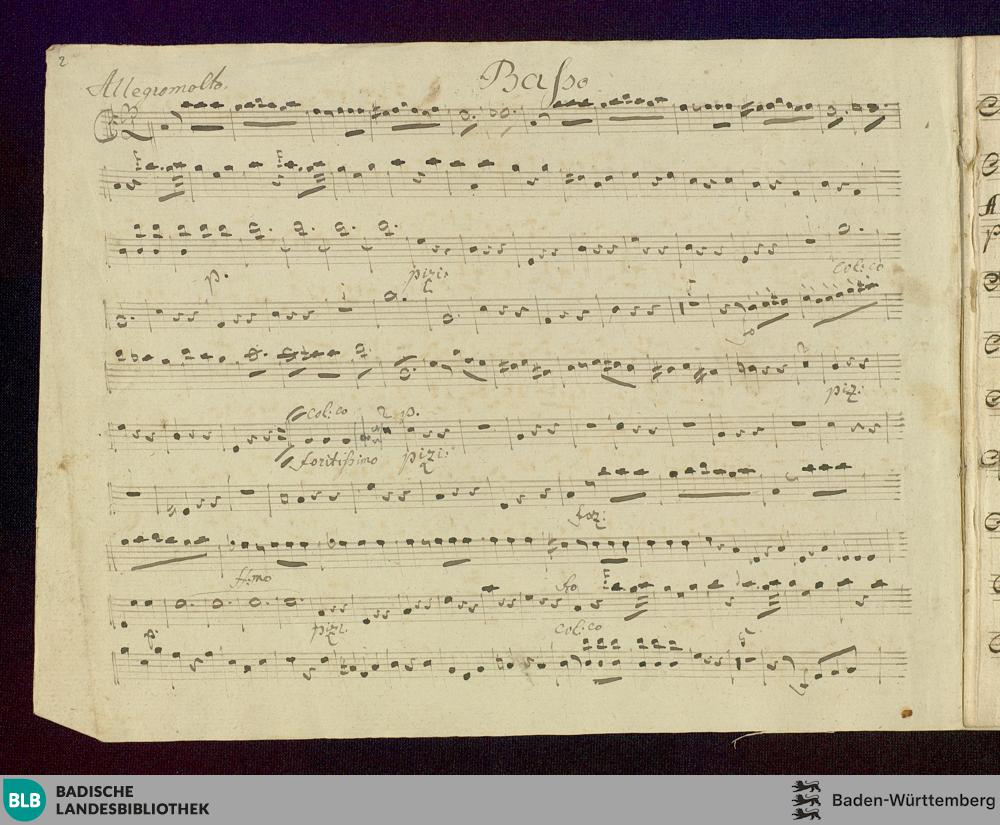 2
Allegro molto.
Basso
p. pizi:
col: co
piz:
col: co 2 p.
foritissimo pizi:
foz:
ff:mo fo
p. pizi: col: co
5
BLB BADISCHE LANDESBIBLIOTHEK
Baden-Württemberg